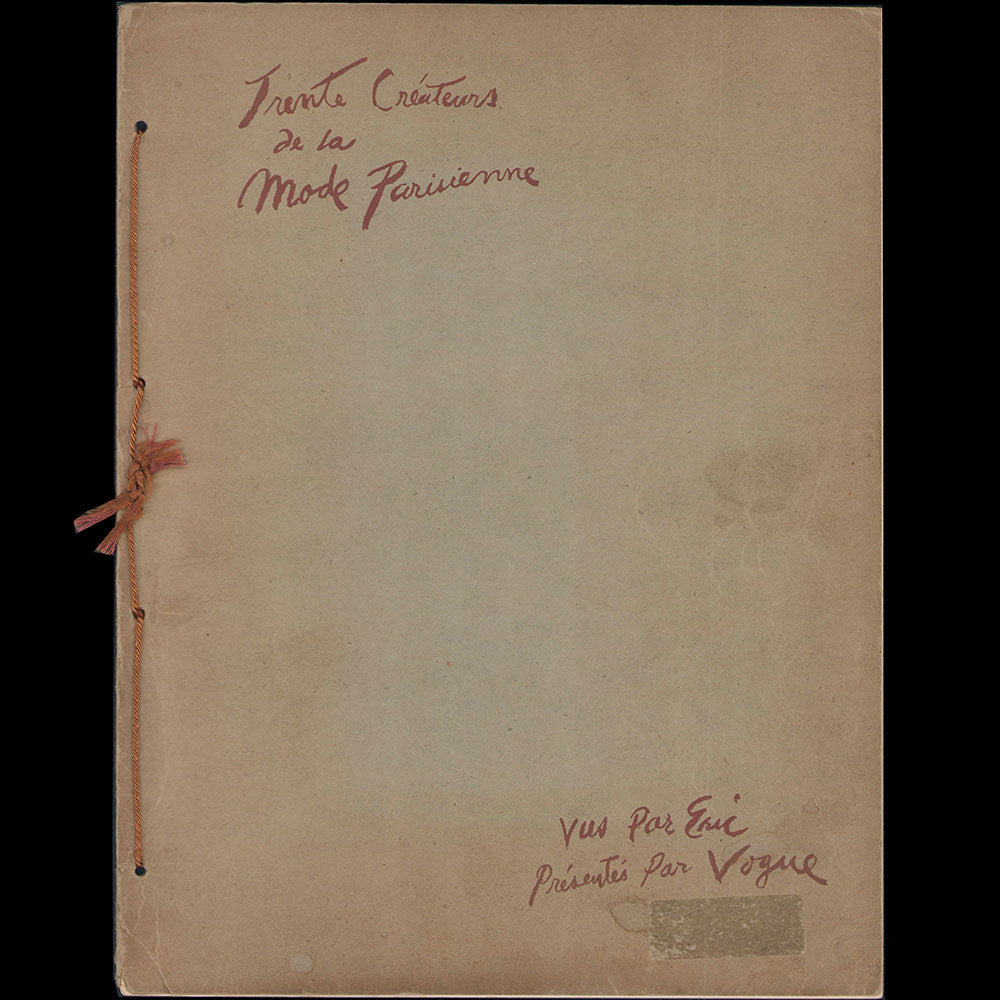 Trente Créateurs
de la
Mode Parisienne
Vus Par Eric
Présentés Par Vogue